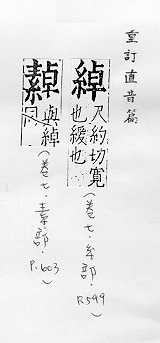 重訂直音篇
綽 尺約切寬
也緩也
(卷七·糸部·P.599)
繛 與綽
同
(卷七·素部·P.603)